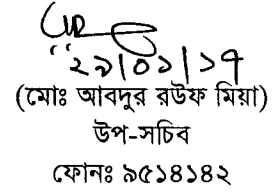 ২৯|০১|১৭
(মোঃ আবদুর রউফ মিয়া)
উপ-সচিব
ফোনঃ ৯৫১৪১৪২